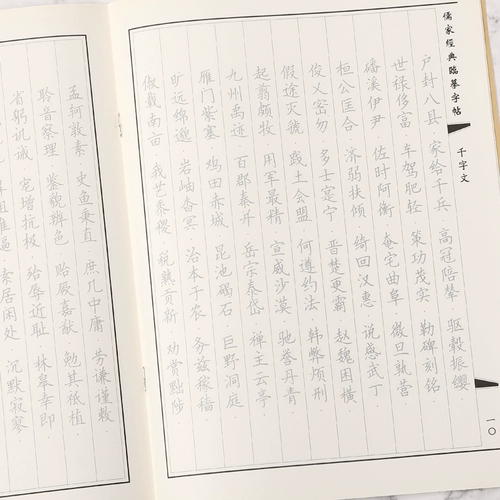 儒家經典臨摹字帖
千字文
一〇
户封八县·家给千兵·高冠陪辇·驱毂振缨·
世禄侈富·车驾肥轻·策功茂实·勒碑刻铭·
磻溪伊尹·佐时阿衡·奄宅曲阜·微旦孰营·
桓公匡合·济弱扶倾·绮回汉惠·说感武丁·
俊乂密勿·多士寔宁·晋楚更霸·赵魏困横·
假途灭虢·践土会盟·何遵约法·韩弊烦刑·
起翦颇牧·用军最精·宣威沙漠·驰誉丹青·
九州禹迹·百郡秦并·岳宗泰岱·禅主云亭·
雁门紫塞·鸡田赤城·昆池碣石·巨野洞庭·
旷远绵邈·岩岫杳冥·治本于农·务兹稼穑·
俶载南亩·我艺黍稷·税熟贡新·劝赏黜陟·
孟轲敦素·史鱼秉直·庶几中庸·劳谦谨敕·
聆音察理·鉴貌辨色·贻厥嘉猷·勉其祗植·
省躬讥诫·宠增抗极·殆辱近耻·林皋幸即·
组谁逼·索居闲处·沉默寂寥